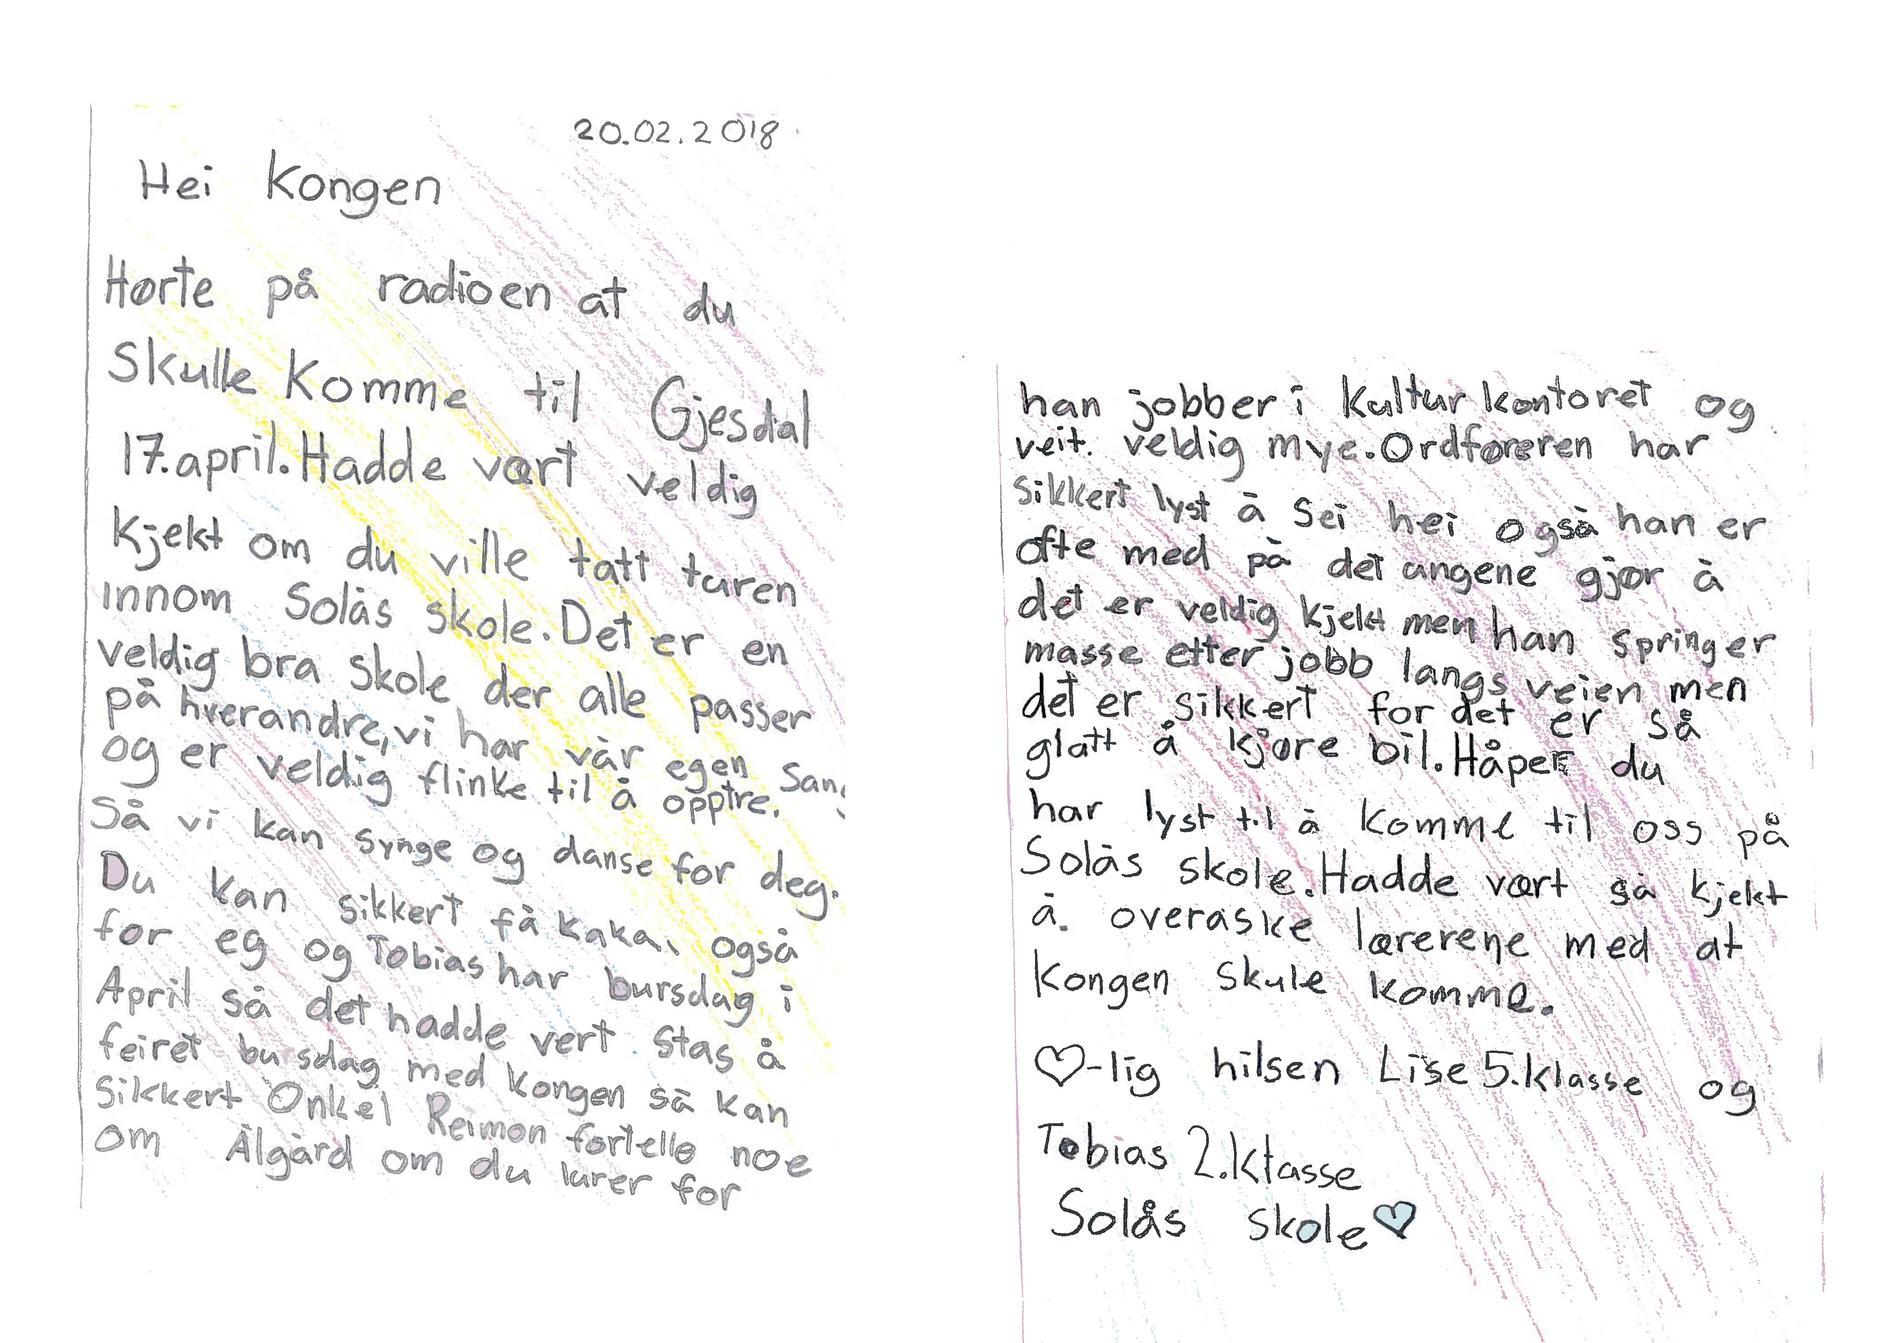 20.02.2018
Hei Kongen
Hørte på radioen at du
Skulle Komme til Gjesdal
17.april. Hadde vært veldig
Kjekt om du ville tatt turen
innom Solås skole. Det er en
veldig bra skole der alle passer
på hverandre, vi har vår egen Sang
og er veldig flinke til å opptre.
Så vi kan synge og danse for deg.
Du kan sikkert få kaka, også
for eg og Tobias har bursdag i
April så det hadde vert stas å
feiret bursdag med kongen så kan
Sikkert Onkel Reimon fortelle noe
om Ålgård om du lurer for
han jobber i Kultur kontoret og
veit. veldig mye. Ordføreren har
sikkert lyst å Sei hei også han er
ofte med på det ungene gjør å
det er veldig kjekt men han springer
masse etter jobb langs veien men
det er sikkert for det er så
glatt å kjøre bil. Håper du
har lyst til å komme til oss på
Solås skole. Hadde vært så kjekt
å. overaske lærerene med at
Kongen skule komme.
♡-lig hilsen Lise 5.klasse og
Tobias 2.klasse
Solås skole ♡